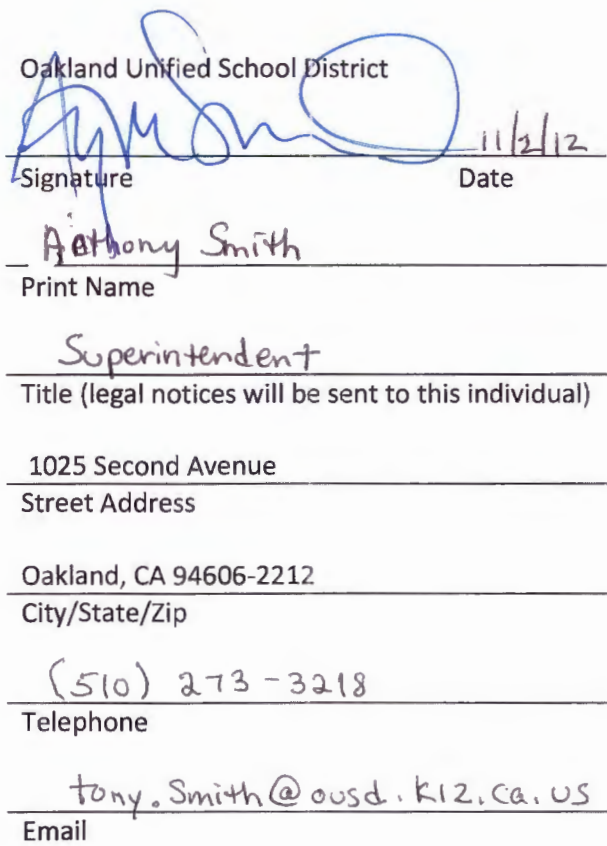 Oakland Unified School District
11/2/12
Signature Date
Anthony Smith
Print Name
Superintendent
Title (legal notices will be sent to this individual)
1025 Second Avenue
Street Address
Oakland, CA 94606-2212
City/State/Zip
(510) 273-3218
Telephone
tony.Smith@ousd.k12.ca.us
Email